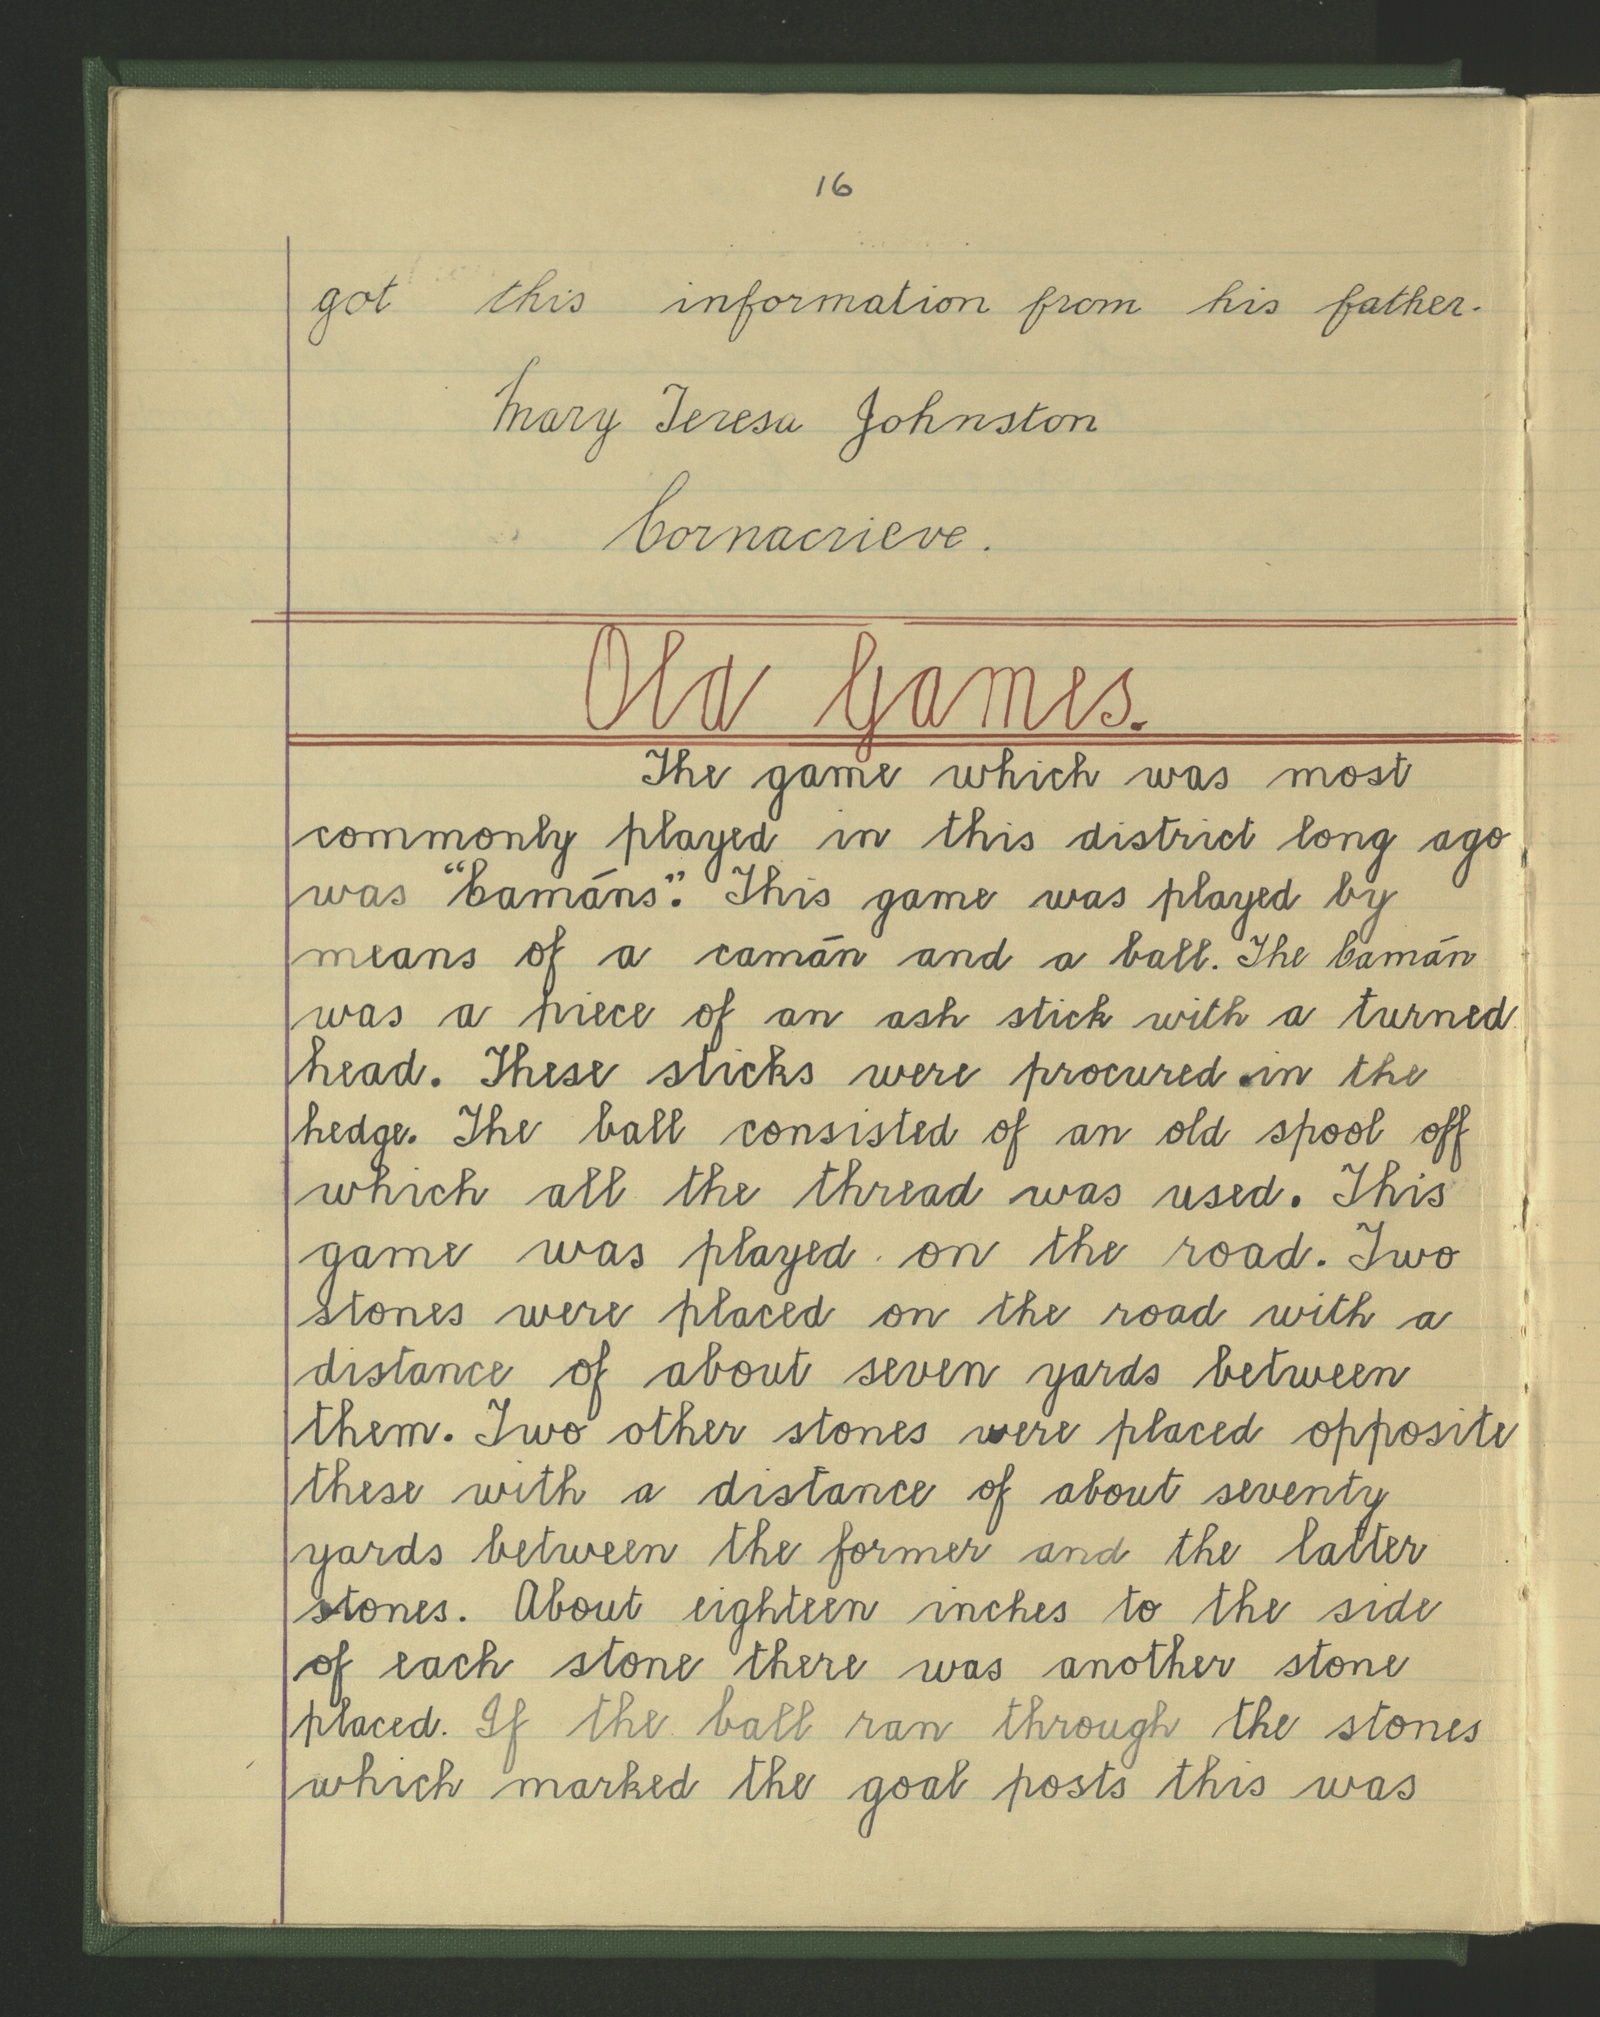 16
got this information from his father.
Mary Teresa Johnston
Cornacrieve.
Old Games.
The game which was most
commonly played in this district long ago
was "Camáns". This game was played by
means of a camán and a ball. The Camán
was a piece of an ash stick with a turned
head. These sticks were procured in the
hedge. The ball consisted of an old spool off
which all the thread was used. This
game was played on the road. Two
stones were placed on the road with a
distance of about seven yards between
them. Two other stones were placed opposite
these with a distance of about seventy
yards between the former and the latter
stones. About eighteen inches to the side
of each stone there was another stone
placed. If the ball ran through the stones
which marked the goal posts this was